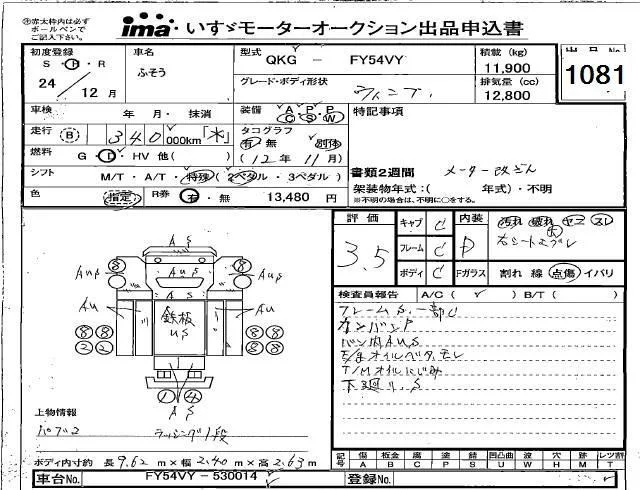 ㊟赤太枠内は必ず
ボールペンで
ご記入下さい。
ima いすゞモーターオークション出品申込書
初度登録 車名 型式 QKG － FY54VY 積載 (kg) 11,900 出品No
S ・ H ・ R ふそう グレード・ボディ形状 排気量 (cc) 12,800 1081
24 / 12 月 ウイング
車検 年 月・ 抹消 装備 A P P C S W 特記事項
走行 B 340,000km「 」 タコグラフ 有 無 別体
燃料 G ・ D ・ HV 他( ) ( 12 年 11 月)
書類2週間 メーター改ざん
シフト M/T ・ A/T ・ 特殊 ( 2ペダル ・ 3ペダル ) 架装物年式:( 年式)・不明
色 指定 R券 有 ・ 無 13,480 円 ※不明の場合は、不明に○をする。
評価 3.5
キャブ C 内装 D 汚れ 破れ ヤニ スレ
フレーム C
ボディ C Fガラス 割れ 線 点傷 イバリ
検査員報告 A/C ( ✓ ) B/T ( )
フレームS.一部U
バン内AUS
T/Mオイルにじみ
下廻り.S
AS
8 8
AuS AuS
AS
Au Au
鉄板
US
8 8 8 8
2 2 8 8
1 4
AS
上物情報
ラッシング1段
ボディ内寸約 長 9.62 m × 幅 2.40 m × 高 2.63 m
記号 傷 A 板金 B 腐 C 塗 P 錆 S 凹凸曲 U 波 W 穴 H 跡 M レンズ割 T
車台No. FY54VY－530014 登録No.